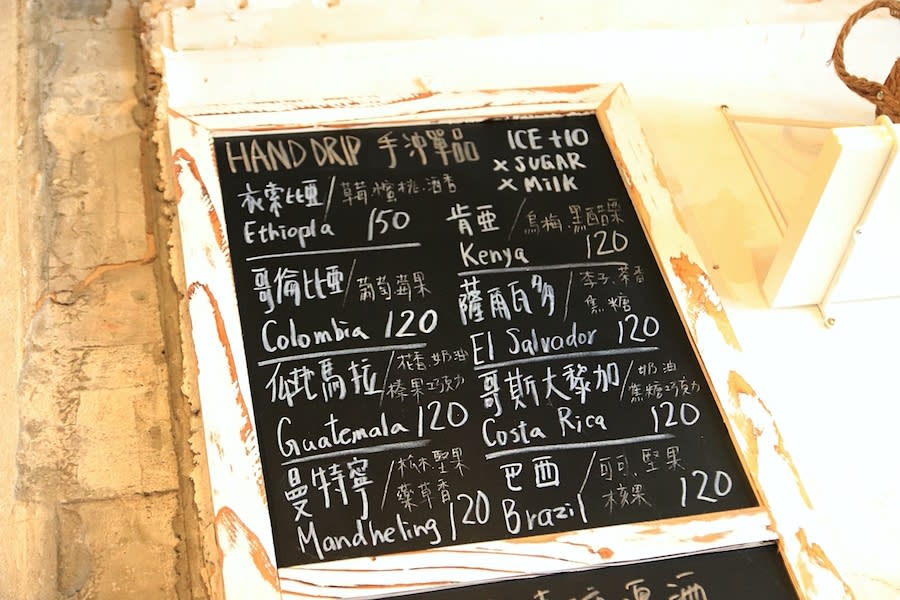 HAND DRIP 手沖單品
ICE +10
x SUGAR
x Milk
衣索比亞/草莓.蜜桃.酒香
Ethiopla 150
哥倫比亞/葡萄.蘋果
Colombia 120
瓜地馬拉/花香.奶油
榛果巧克力
Guatemala 120
曼特寧/松木.堅果
藥草香
Mandheling 120
肯亞/烏梅.黑醋栗
Kenya 120
薩爾瓦多/李子.茶香
焦糖
El Salvador 120
哥斯大黎加/奶油
焦糖巧克力
Costa Rica 120
巴西/可可.堅果
核果
Brazil 120
酒